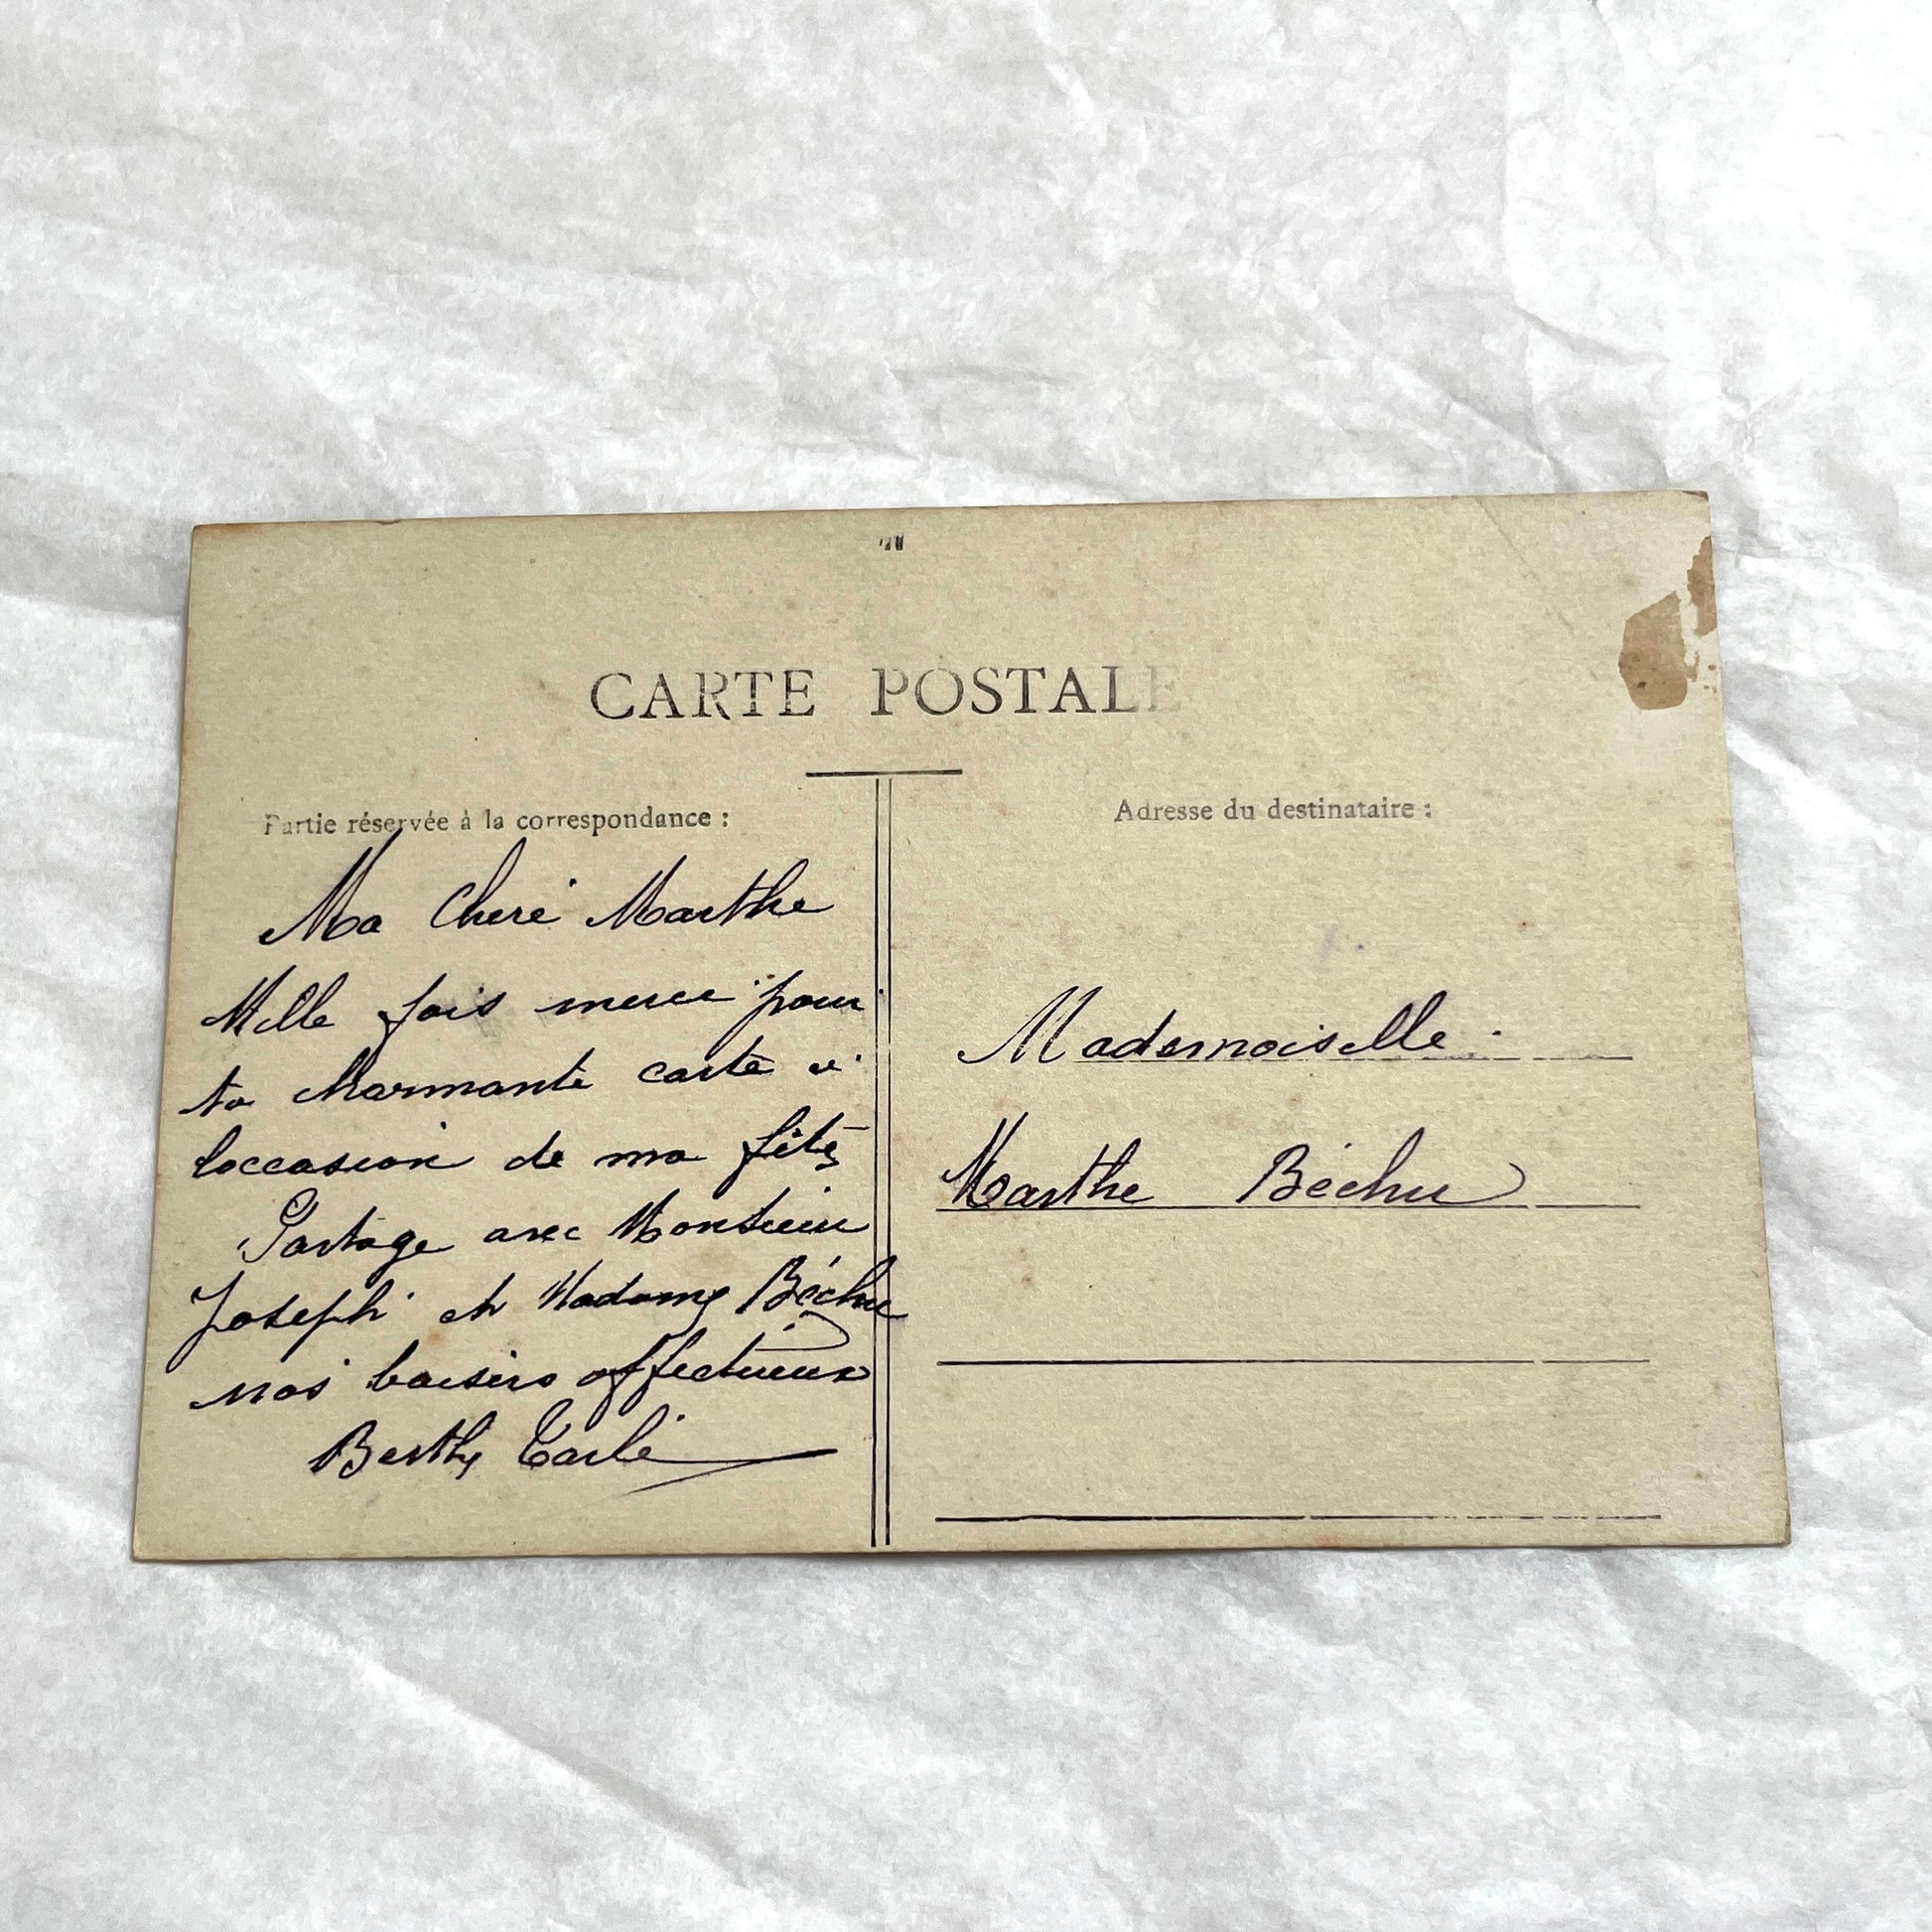 CARTE POSTALE
Partie réservée à la correspondance :
Ma Chere Marthe
Mille fois merci pour
ta charmante carte a
loccasion de ma fête
Partage avec Monsieur
Joseph et Madame Béchu
nos baisers affectueux
Berthe
Adresse du destinataire :
Mademoiselle
Marthe Béchu